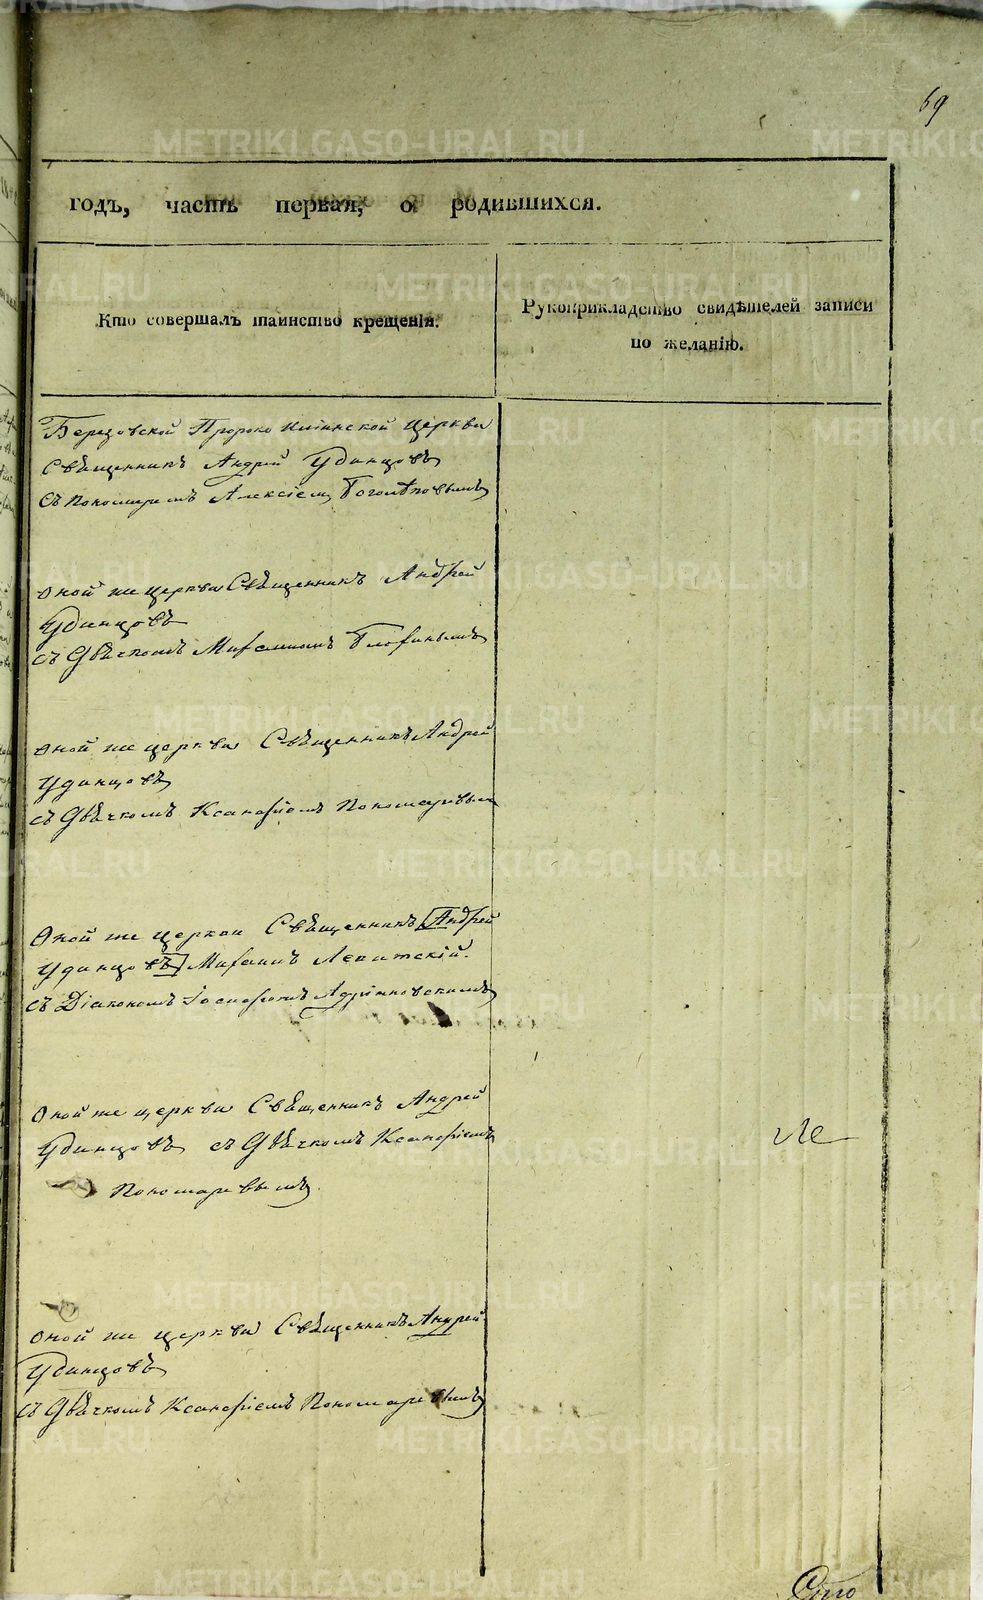 69
годъ, часть первая, о родившихся.
Кто совершалъ таинство крещенія.
Рукоприкладство свидѣтелей записи
по желанію.
Березовской Пророко Илiинской церкви
Священникъ Андрей Удинцовъ
Съ Пономаремъ Алексіемъ Боголѣповымъ
Оной же церкви Священникъ Андрей
Удинцовъ
съ Дьячкомъ
Оной же церкви Священникъ Андрей
Удинцовъ
съ Дьячкомъ Ксанофіемъ Пономаревым
Оной же церкви Священникъ [Андрей
Удинцовъ] Михаилъ Левитскій.
съ Діакономъ Іосифомъ Адріановскимъ
Оной же церкви Священникъ Андрей
Удинцовъ съ Дьячкомъ Ксанофіемъ
Пономаревымъ
Оной же церкви Священникъ Андрей
Удинцовъ
съ Дьячкомъ Ксанофіемъ Пономаревымъ
METRIKI.GASO-URAL.RU